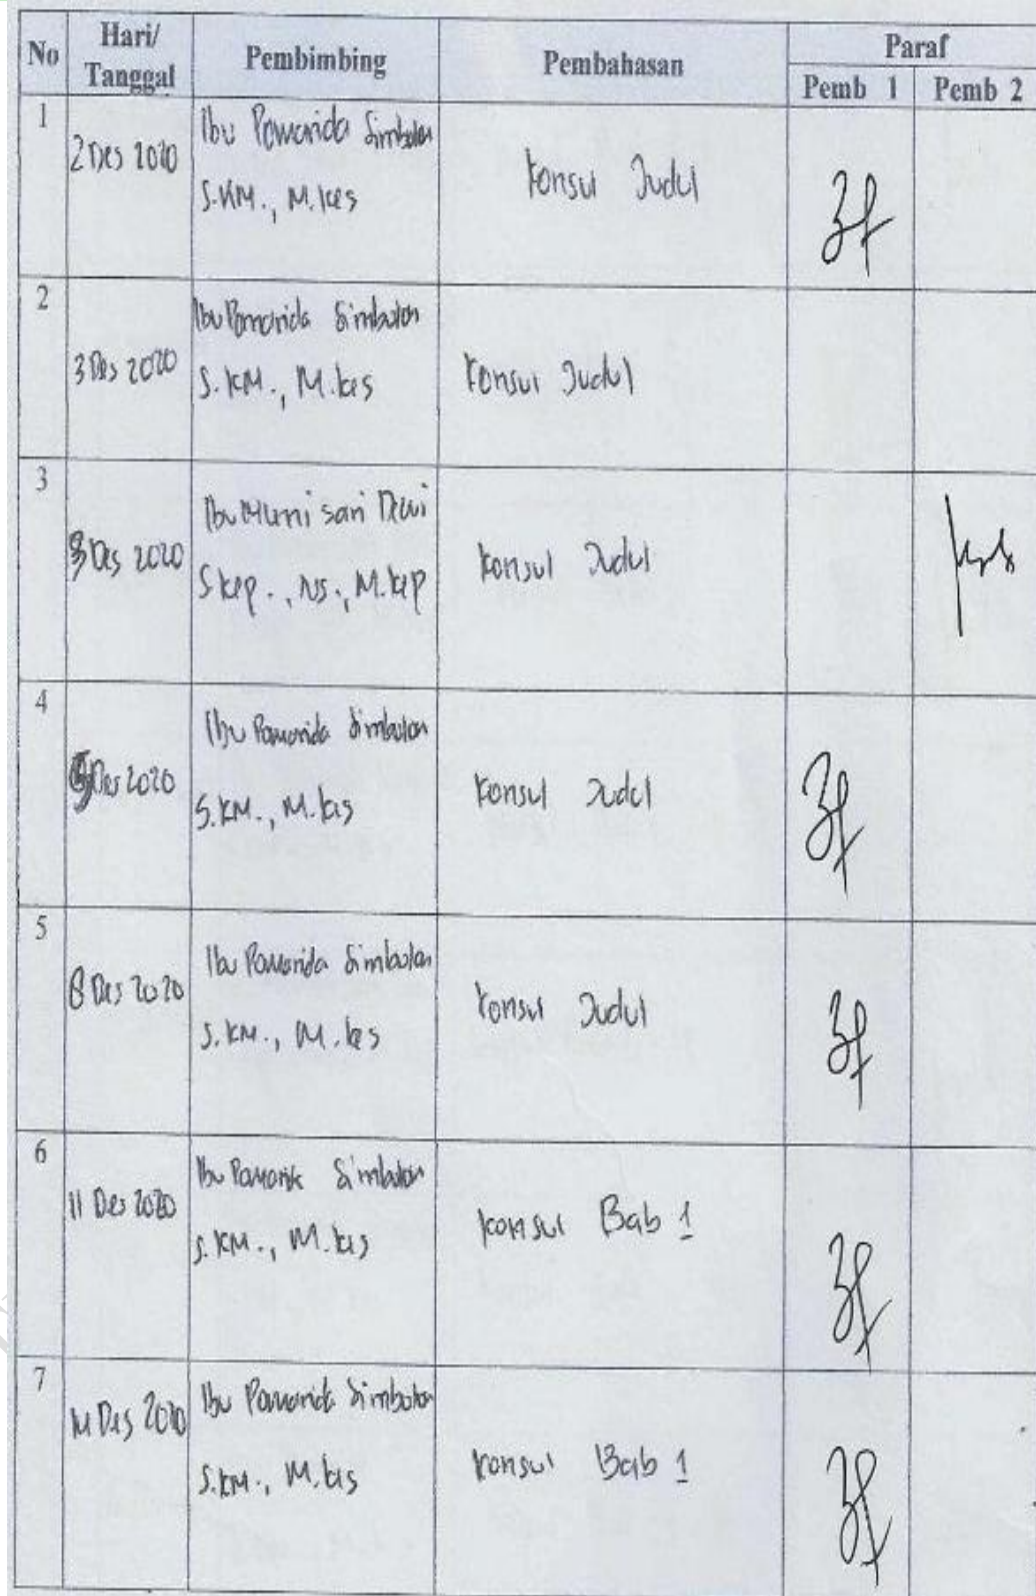 No Hari/ Tanggal Pembimbing Pembahasan Paraf
Pemb 1 Pemb 2
1
2 Des 2020
Ibu Pomarida Simbolon
S.KM., M.kes
konsul Judul
2
3 Des 2020
Ibu Pomarida Simbolon
S.KM., M.kes
Konsul Judul
3
3 Des 2020
Ibu Murni sari Dewi
S.kep., NS., M.kep
konsul Judul
4
Des 2020
Ibu Pomarida Simbolon
S.KM., M.kes
konsul Judul
5
8 Des 2020
Ibu Pomarida Simbolon
S.KM., M.kes
konsul Judul
6
11 Des 2020
Ibu Simbolon
S.KM., M.kes
konsul Bab 1
7
Des 2020
Ibu Pomarida Simbolon
S.KM., M.kes
konsul Bab 1